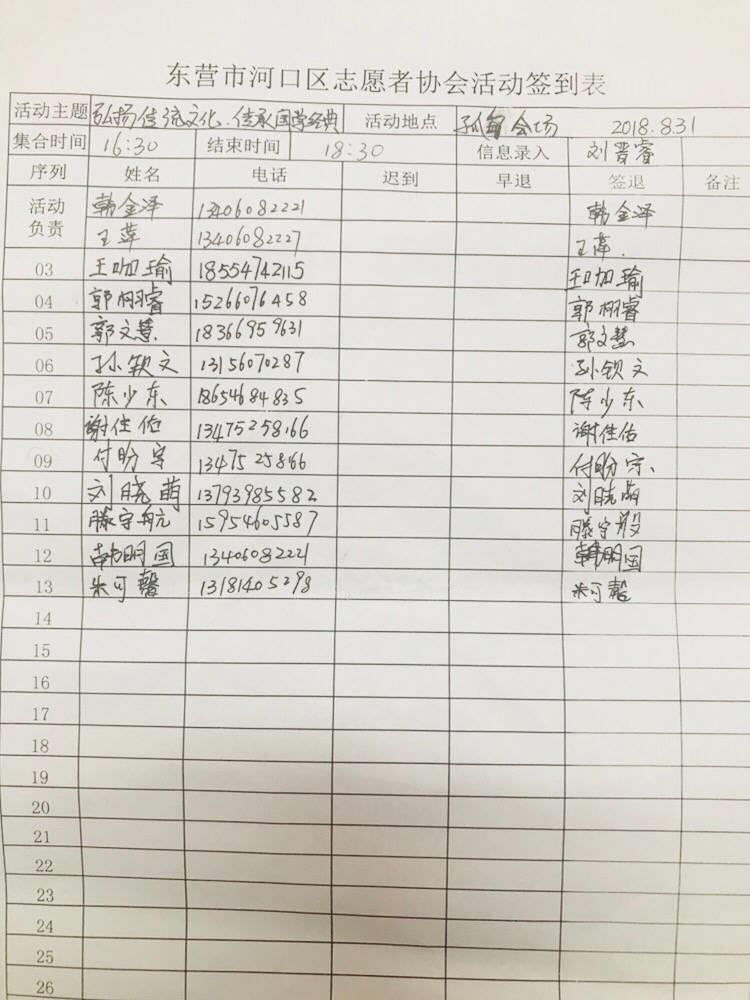 东营市河口区志愿者协会活动签到表
活动主题 弘扬传统文化.传承国学经典 活动地点 会场 2018.8.31
集合时间 16:30 结束时间 18:30 信息录入 刘晋睿
序列 姓名 电话 迟到 早退 签退 备注
活动负责 韩金泽 13406082221 韩金泽
王萍 13406082227 王萍.
03 王咖瑜 18554742115 王咖瑜
04 郭栩睿 15266076458 郭栩睿
05 郭文慧 18366959631 郭文慧
06 孙钦文 13156070287 孙钦文
07 陈少东 18654684835 陈少东
08 谢佳佑 13475258166 谢佳佑
09 付盼宇 13475258166 付盼宇
10 刘晓萌 13793985582 刘晓萌
11 滕宇航 15954605587 滕宇航
12 韩明国 13406082221 韩明国
13 朱可馨 13181405298 朱可馨
14
15
16
17
18
19
20
21
22
23
24
25
26